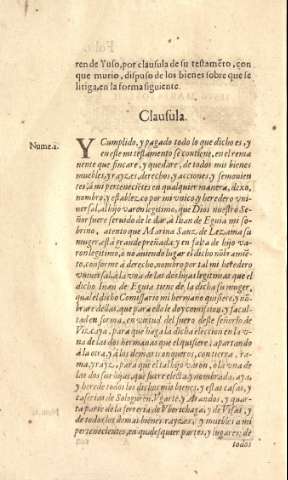 ren de Yuso, por clausula de su testamẽto, con
que murio, dispuso de los bienes sobre que se
litiga, en la forma siguiente.
Clausula.
Nume. 1.
Y Cumplido, y pagado todo lo que dicho es, y
en este mi testamento se contiene, en el rema
nente que fincare, y quedare, de todos mis bienes
muebles, y rayzes, derechos, y acciones, y semouien
tes à mi pertenecietes en qualquier manera, dexo,
nombro, y establezco por mi vnico y heredero vni-
uersal, al hijo varon legitimo, que Dios nuestro Se
ñor fuere seruido de le dar à Iuan de Eguia mi so-
brino, atento que Marina Sanz. de Lezama su
muger, està grande preñada: y en falta de hijo va-
ron legitimo, ò no auiendo lugar el dicho nõbramiẽ-
to, conforme à derecho, nombro por tal mi heredero
vniuersal, à la vna de las dos hijas legitimas que el
dicho Iuan de Eguia tiene de la dicha su muger,
qual el dicho Comissario mi hermano quisiere, y nõ-
brare dellas, que para ello le doy comission, y facul-
tad en forma, en virtud del fuero deste señorio de
Vizcaya, para que haga la dicha eleccion en la v-
na de las dos hermanas que el quisiere: apartando
à la otra, y à los demas tronqueros, con tierra, ra-
ma, y rayz, para que el tal hijo varon, ò la vna de
las dos sus hijas, que fuere electa, y nombrada, aya,
y herede todos los dichos mis bienes, y estas casas, y
caserias de Sologuren, Vgarte, y Arandos, y quar-
ta parte de la ferreria de Vbertchaga, y de
y de todos los demas bienes rayzes, y muebles à mi
pertenecientes, en qualesquier partes, y lugares; de
todos